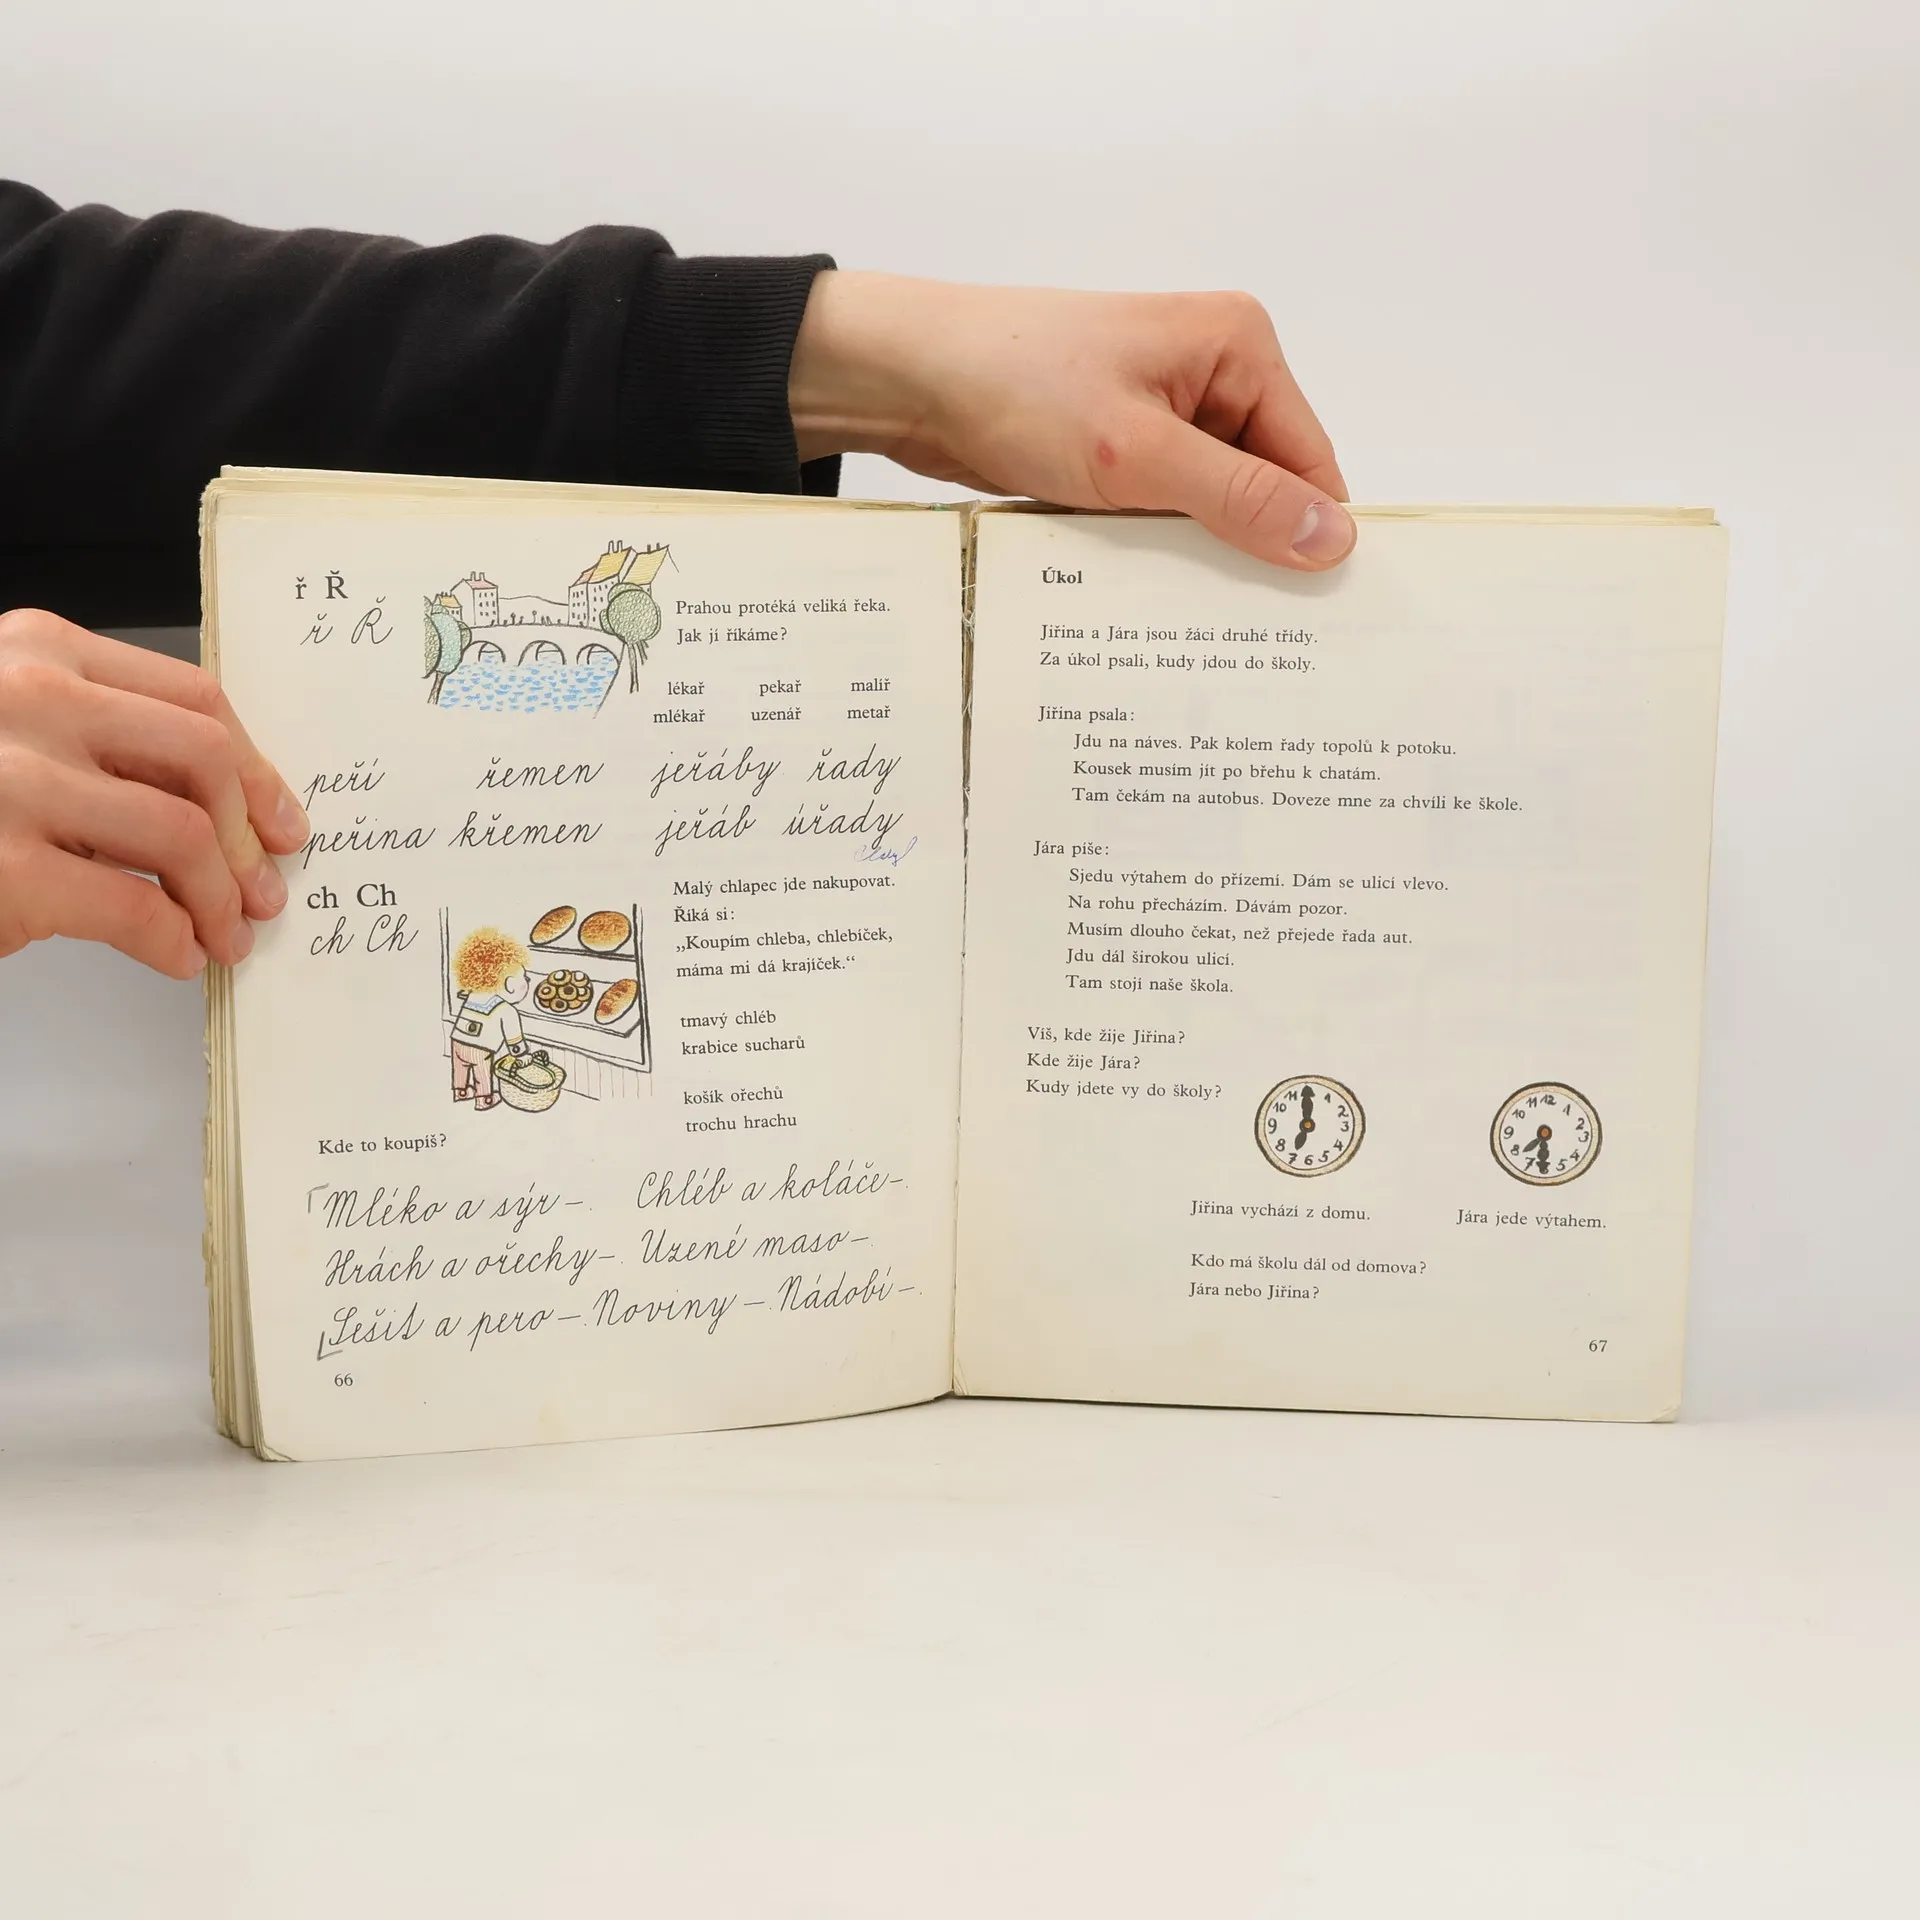 ř Ř
ř Ř
Prahou protéká veliká řeka.
Jak jí říkáme?
lékař pekař malíř
mlékař uzenář metař
peří řemen jeřáby řady
peřina křemen jeřáb úřady
ch Ch
ch Ch
Malý chlapec jde nakupovat.
Říká si:
„Koupím chleba, chlebíček,
máma mi dá krajíček.“
tmavý chléb
krabice sucharů
košík ořechů
trochu hrachu
Kde to koupíš?
Mléko a sýr –. Chléb a koláče –.
Hrách a ořechy –. Uzené maso –.
Sešit a pero –. Noviny –. Nádobí –.
66
Úkol
Jiřina a Jára jsou žáci druhé třídy.
Za úkol psali, kudy jdou do školy.
Jiřina psala:
Jdu na náves. Pak kolem řady topolů k potoku.
Kousek musím jít po břehu k chatám.
Tam čekám na autobus. Doveze mne za chvíli ke škole.
Jára píše:
Sjedu výtahem do přízemí. Dám se ulicí vlevo.
Na rohu přecházím. Dávám pozor.
Musím dlouho čekat, než přejede řada aut.
Jdu dál širokou ulicí.
Tam stojí naše škola.
Víš, kde žije Jiřina?
Kde žije Jára?
Kudy jdete vy do školy?
11 1 2 3 4 5 6 7 8 9 10
12 1 2 3 4 5 7 8 9 10 11
Jiřina vychází z domu.
Jára jede výtahem.
Kdo má školu dál od domova?
Jára nebo Jiřina?
67